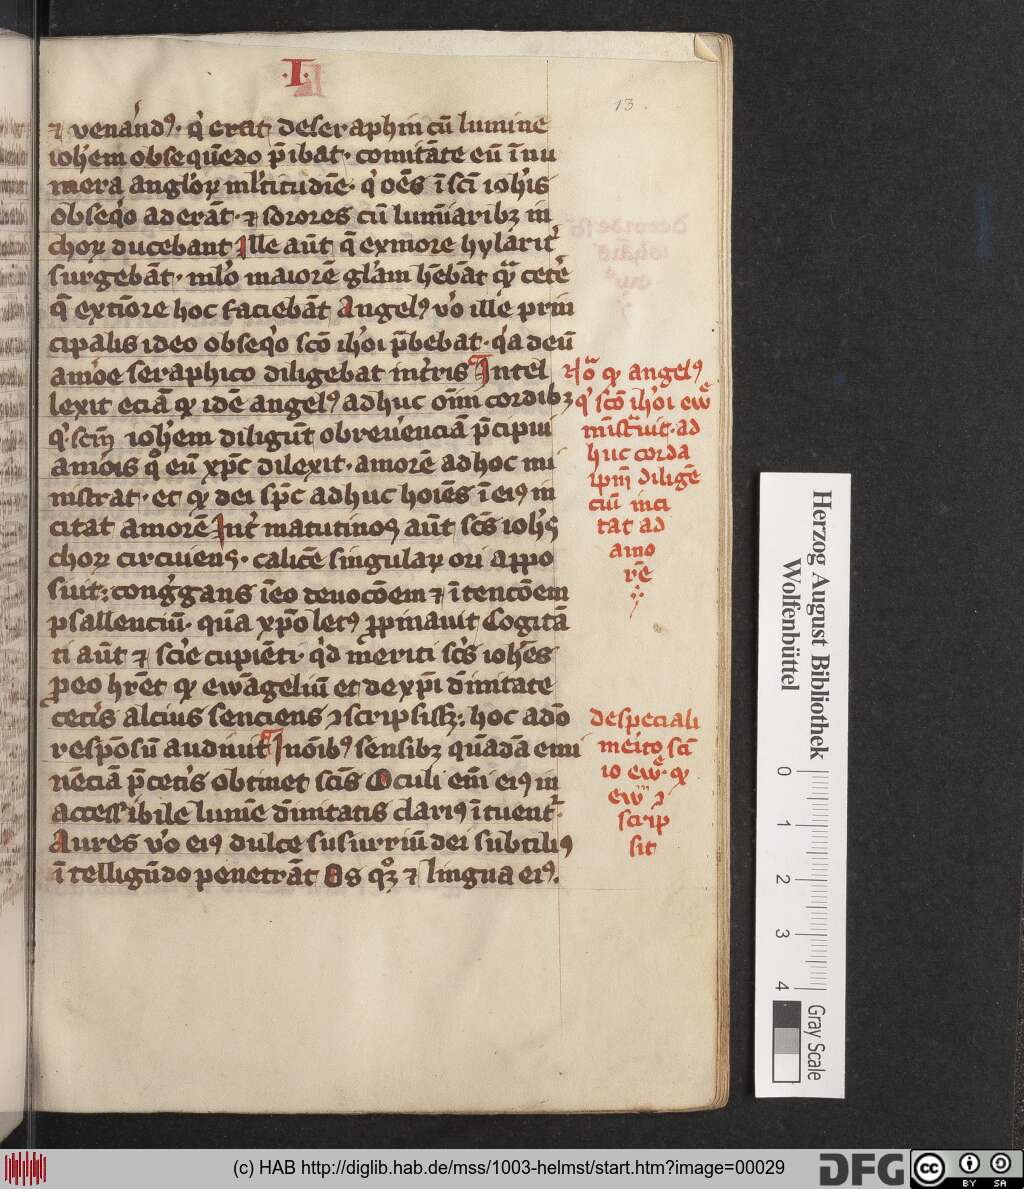 ·I·
13.
⁊ venand9· q̇ erat de seraphin cū lumine
ioh'em obseq̄ūedo p̄ibat· comitāte eū īnu
mera anglo℞ ml'titudīe· q' oēs ī sc̄i ioh'is
obseq̇o aderāt· ⁊ sorores cū lumīarib3 in
cho℞ ducebant Ille aūt q̄ ex more hylarit'
surgebāt· ml'o maiorē gl'am hēbāt qᵃ̄ cete'
q̄ extīore hoc faciebāt Angel9 v'o ille prin
cipalis ideo obseq̇o sc̄o ih'oi p̄bebat· q'a deū
am'oe seraphico diligebat int'ris Intel
lexit eciā ꝙ idē angel9 adhuc oīm cordib3
q'· sctm̄ ioh'em diligūt ob reu'enciā p̄cipui
amōis q̊ eū xp̄c dilexit· amorē ad hoc mi
nistrat· et ꝙ dei sp̄c adhuc hoīes ī ei9 in
citat amorē Int' matutinos aūt sc̄s ioh'es
cho℞ circuiens· calicē singula℞ ori appo
suit: cong'gans īeo deuocōem ⁊ ītencōem
psallenciū· quā xp̄o let9 ꝓpinauit Cogitā
ti aūt ⁊ sci'e cupiēti· q'd m̄eriti sc̄s ioh'es
ꝓ eo hr̄et ꝙ ewāgeliū et de xp̄i diuinitate
cet'is alcius senciens ↄscripsiss3: hoc ad'o
respōsū audiuit In oīb9 sensib3 quādā emi
nēciā p̄ cet'is obtinet sc̄s Oculi em̄ ei9 in
accessibile lumē diuinitatis clari9 ītuent'·
Aures v'o ei9 dulce susurriū dei subtili9
ītelligūdo penetrāt Os qͦ3 ⁊ lingua ei9.
Nōᵃ ꝙ angel9
q' sc̄o ih'oi ew̄
mīst'uit· ad
huc corda
ip̄m diligē
ciū inci
tat ad
amo
rē
de speciali
m'eito sc̄i
io ew̄· ꝙ
ew̄ ↄ
scrip
sit
Herzog August Bibliothek
Wolfenbüttel
0 1 2 3 4
Gray Scale
(c) HAB http://diglib.hab.de/mss/1003-helmst/start.htm?image=00029
DFG
cc BY SA